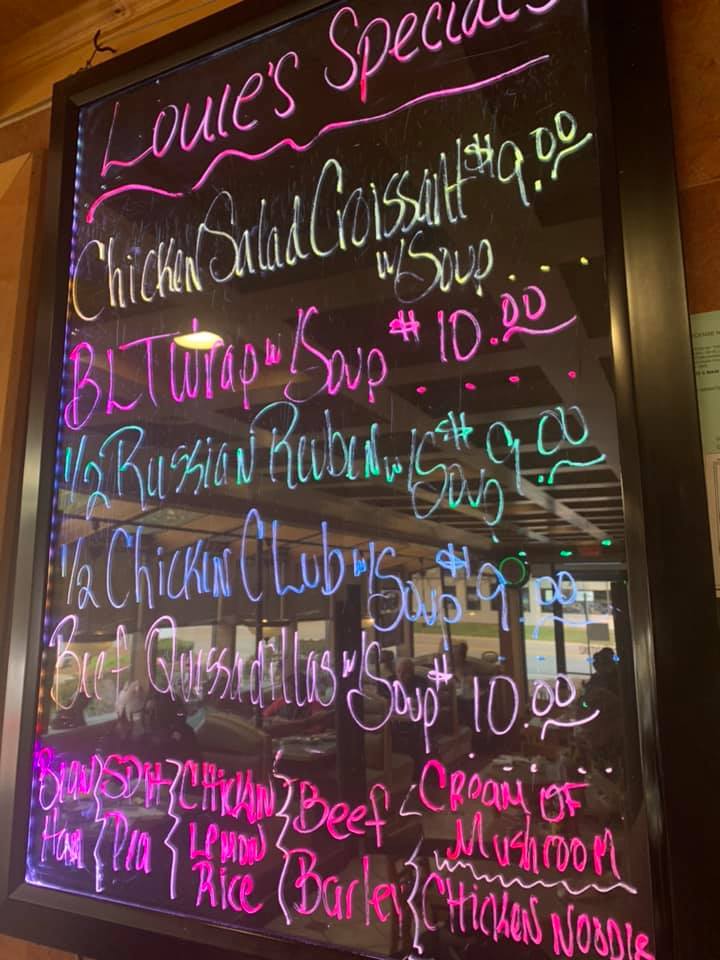 Louie's Specials
Chicken Salad Croissant $9.00
w/Soup....
BLT Wrap w/Soup $10.00
1/2 Russian Reuben w/Soup $9.00
1/2 Chicken Club w/Soup $9.00
Beef Quessadillas w/Soup $10.00
Bean Ham
Split Pea
Chicken Lemon Rice
Beef Barley
Cream of Mushroom
Chicken Noodle